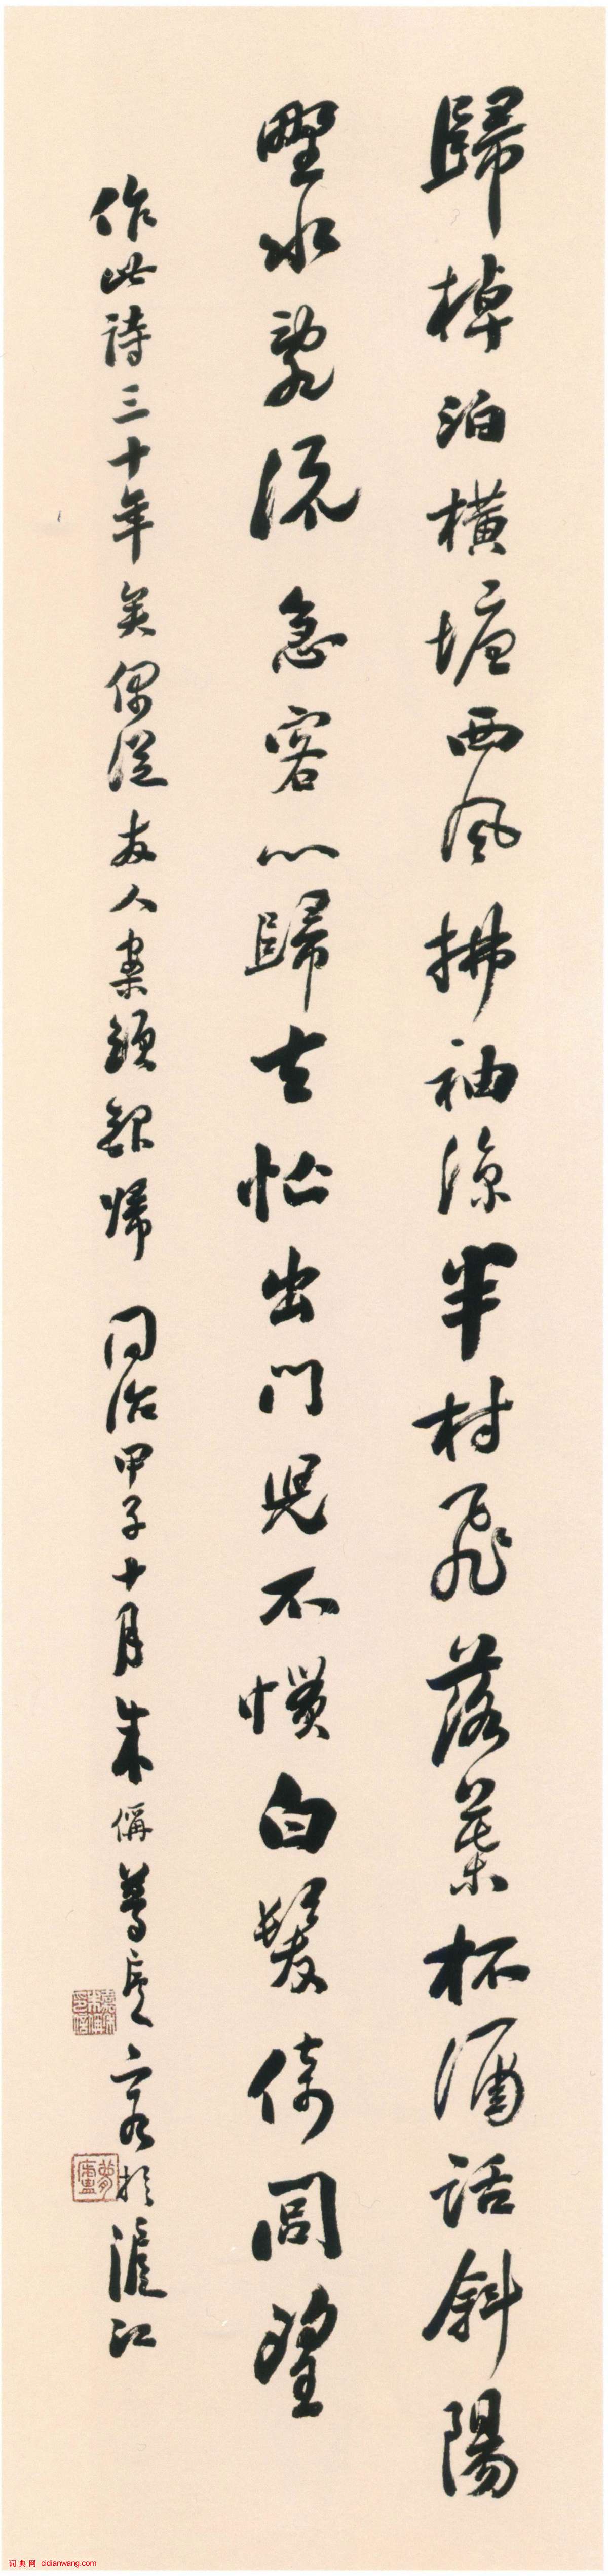 歸棹泊橫塘西風拂袖涼半村飛落葉杯酒話斜陽
野水亂流急客心歸去忙出門兒不慣白髮倚閭望
作此詩三十年矣偶從友人案頭錄歸 同治甲子十月朱偁夢廬客於滬江
词典网 cidianwang.com